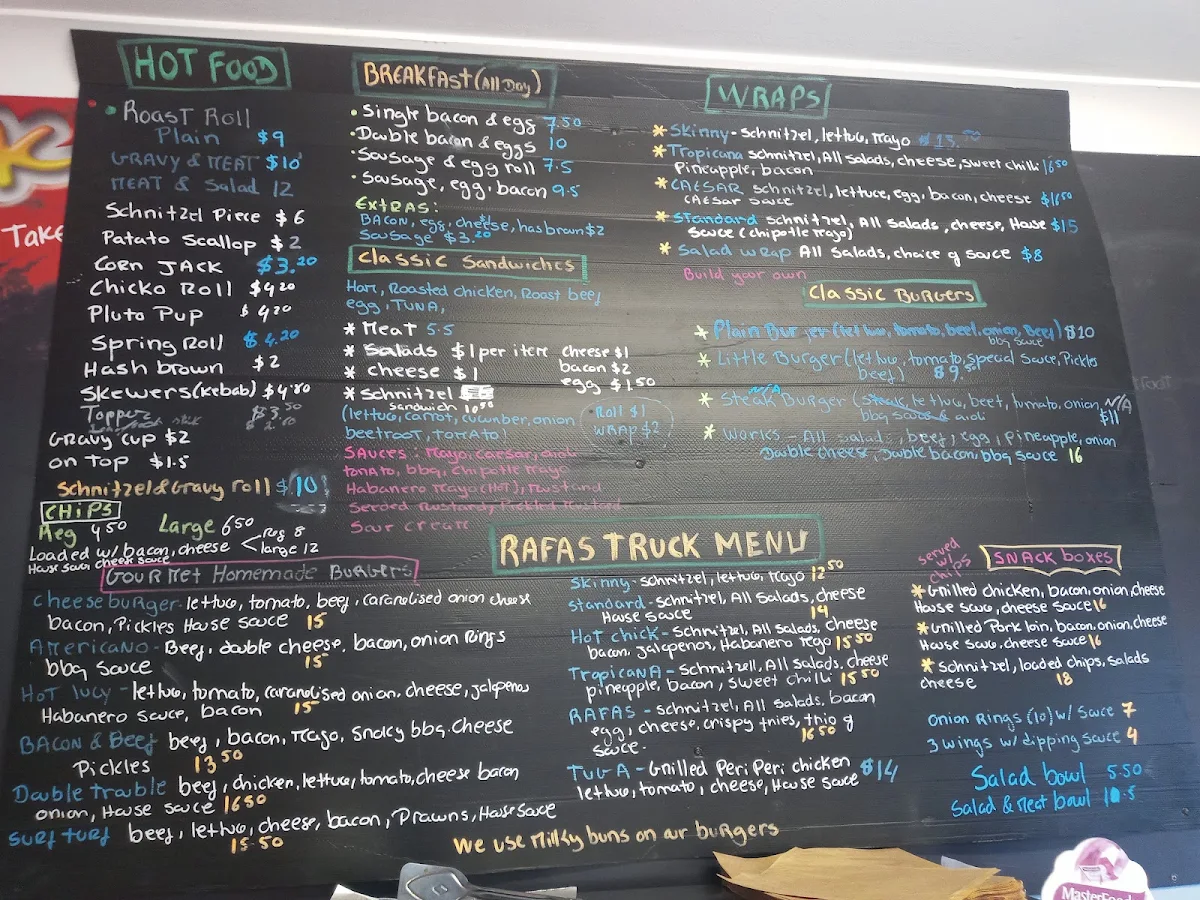 HOT FOOD
Roast Roll
Plain $9
GRAVY & MEAT $10
MEAT & Salad 12
Schnitzel Piece $6
Patato Scallop $2
Corn JACK $3.20
Chicko Roll $4.20
Pluto Pup $4.20
Spring Roll $4.20
Hash brown $2
Skewers(kebab) $4.80
Topper $3.50
Gravy cup $2
on top $1.5
Schnitzel & Gravy roll $10
CHIPS
Reg 4.50 Large 6.50
Loaded w/ bacon, cheese Reg 8
House sauce cheese sauce large 12
BREAKFAST (All Day)
Single bacon & egg 7.50
Double bacon & eggs 10
Sausage & egg roll 7.5
Sausage, egg, bacon 9.5
EXTRAS:
BACON, egg, cheese, $1 hasbrown $2
Sausage $3.20
Classic Sandwiches
Ham, Roasted chicken, Roast beef
egg, TUNA,
* Meat 5.5
* Salads $1 per item cheese $1
* cheese $1 bacon $2
egg $1.50
* Schnitzel
Sandwich 10.50
Roll $1
WRAP $2
(lettuce, carrot, cucumber, onion
beetroot, tomato)
Sauces: Mayo, Caesar, aioli
tomato, bbq, chipotle mayo
Habanero Mayo (Hot), Mustard
Seeded Mustard, Pickled Mustard
Sour cream
WRAPS
* Skinny - schnitzel, lettuce, mayo $13.50
* Tropicana schnitzel, All salads, cheese, sweet chilli 16.50
Pineapple, bacon
* CAESAR schnitzel, lettuce, egg, bacon, cheese $16.50
CAEsar sauce
* Standard schnitzel, All Salads, cheese, House $15
Sauce (chipotle mayo)
* Salad wrap All Salads, choice of sauce $8
Build your own
Classic Burgers
* Plain Burger (lettuce, tomato, beef, onion, Beef) $10
bbq sauce
* Little Burger (lettuce, tomato, special sauce, Pickles
beef) $9.50
N/A
* Steak Burger (Steak, lettuce, beet, tomato, onion, N/A
bbq sauce & aioli $11
* Works - All Salads, beef, egg, pineapple, onion
Double cheese, Double bacon, bbq sauce 16
GOURMET Homemade BURGERS
Cheeseburger - lettuce, tomato, beef, caramelised onion cheese
bacon, Pickles House sauce 15
AMERICANO - Beef, double cheese, bacon, onion Rings
bbq sauce 15
Hot Lucy - lettuce, tomato, caramelised onion, cheese, jalapenos
Habanero sauce, bacon 15
BACON & Beef beef, bacon, mayo, smoky bbq, cheese
Pickles 13.50
Double trouble beef, chicken, lettuce, tomato, cheese bacon
onion, House sauce 16.50
SURF TURF beef, lettuce, cheese, bacon, Prawns, House Sauce
15.50
RAFAS TRUCK MENU
Skinny - schnitzel, lettuce, mayo 12.50
Standard - schnitzel, All Salads, cheese
House sauce 14
Hot chick - Schnitzel, All Salads, cheese
bacon, jalapenos, Habanero mayo 15.50
TropicanA - Schnitzell, All Salads, cheese
pineapple, bacon, sweet chilli 15.50
RAFAS - schnitzel, All Salads, bacon
egg, cheese, crispy fries, trio of
sauce. 16.50
TUGA - Grilled Peri Peri chicken $14
lettuce, tomato, cheese, House sauce
We use Milky buns on our burgers
served w/ chips
SNACK boxes
* Grilled chicken, bacon, onion, cheese
House sauce, cheese sauce 16
* Grilled Pork loin, bacon, onion, cheese
House sauce, cheese sauce 16
* Schnitzel, loaded chips, salads
cheese 18
Onion Rings (10) w/ sauce 7
3 wings w/ dipping sauce 4
Salad bowl 5.50
Salad & Meat bowl 10.5
Take
MasterFoods